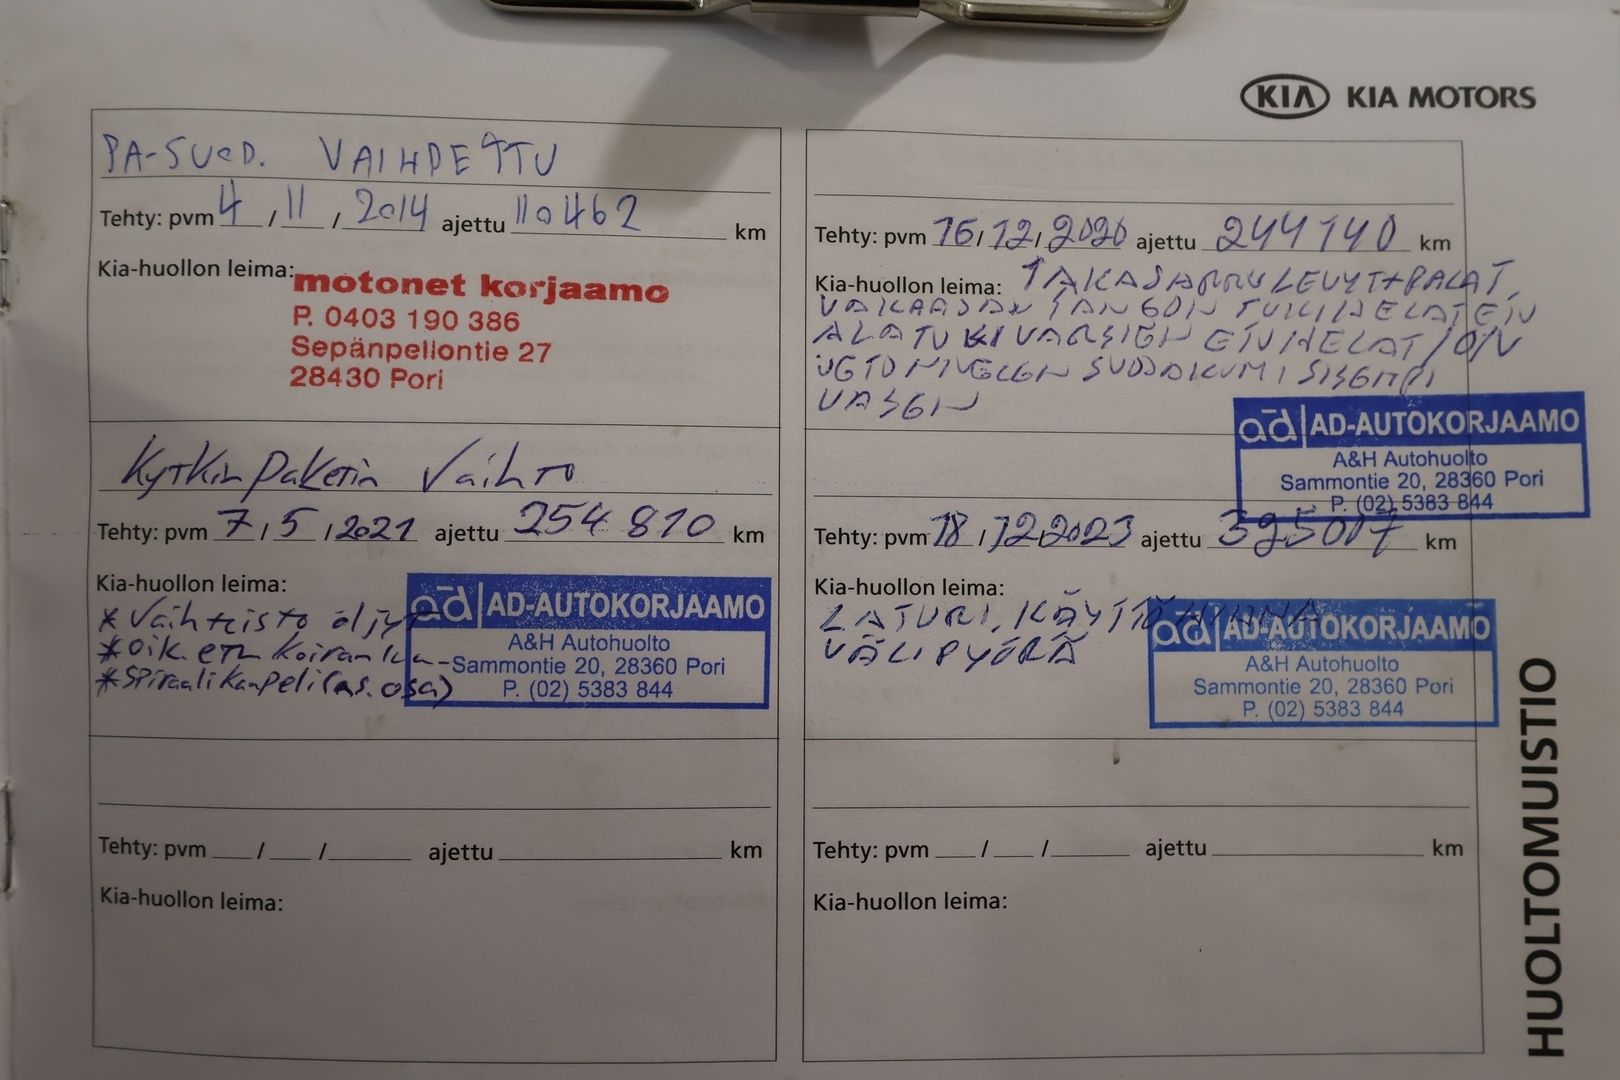 KIA KIA MOTORS
PA-SUOD. VAIHDETTU
Tehty: pvm 4 / 11 / 2014 ajettu 110462 km
Kia-huollon leima:
motonet korjaamo
P. 0403 190 386
Sepänpellontie 27
28430 Pori
Kytkinpaketin Vaihto
Tehty: pvm 7 / 5 / 2021 ajettu 254 810 km
Kia-huollon leima:
* Vaihteisto öljyt
* Oik. etu koiranluu
* Spiraalikaapeli (as. osa)
ad AD-AUTOKORJAAMO
A&H Autohuolto
Sammontie 20, 28360 Pori
P. (02) 5383 844
Tehty: pvm ___ / ___ / ______ ajettu ______ km
Kia-huollon leima:
Tehty: pvm 16 / 12 / 2020 ajettu 244 140 km
Kia-huollon leima: TAKAJARRULEVYT+PALAT,
VAKAAJAN TANGON TUKIHELAT ETU
ALATUKIVARSIEN ETUHELAT /O/V
VETONIVELEN SUOJAKUMI SISEMPI
VASEN
ad AD-AUTOKORJAAMO
A&H Autohuolto
Sammontie 20, 28360 Pori
P. (02) 5383 844
Tehty: pvm 18 / 12 2023 ajettu km
Kia-huollon leima:
LATURI, KÄYTTÖHIHNA
VÄLIPYÖRÄ
ad AD-AUTOKORJAAMO
A&H Autohuolto
Sammontie 20, 28360 Pori
P. (02) 5383 844
Tehty: pvm ___ / ___ / ______ ajettu ______ km
Kia-huollon leima:
HUOLTOMUISTIO